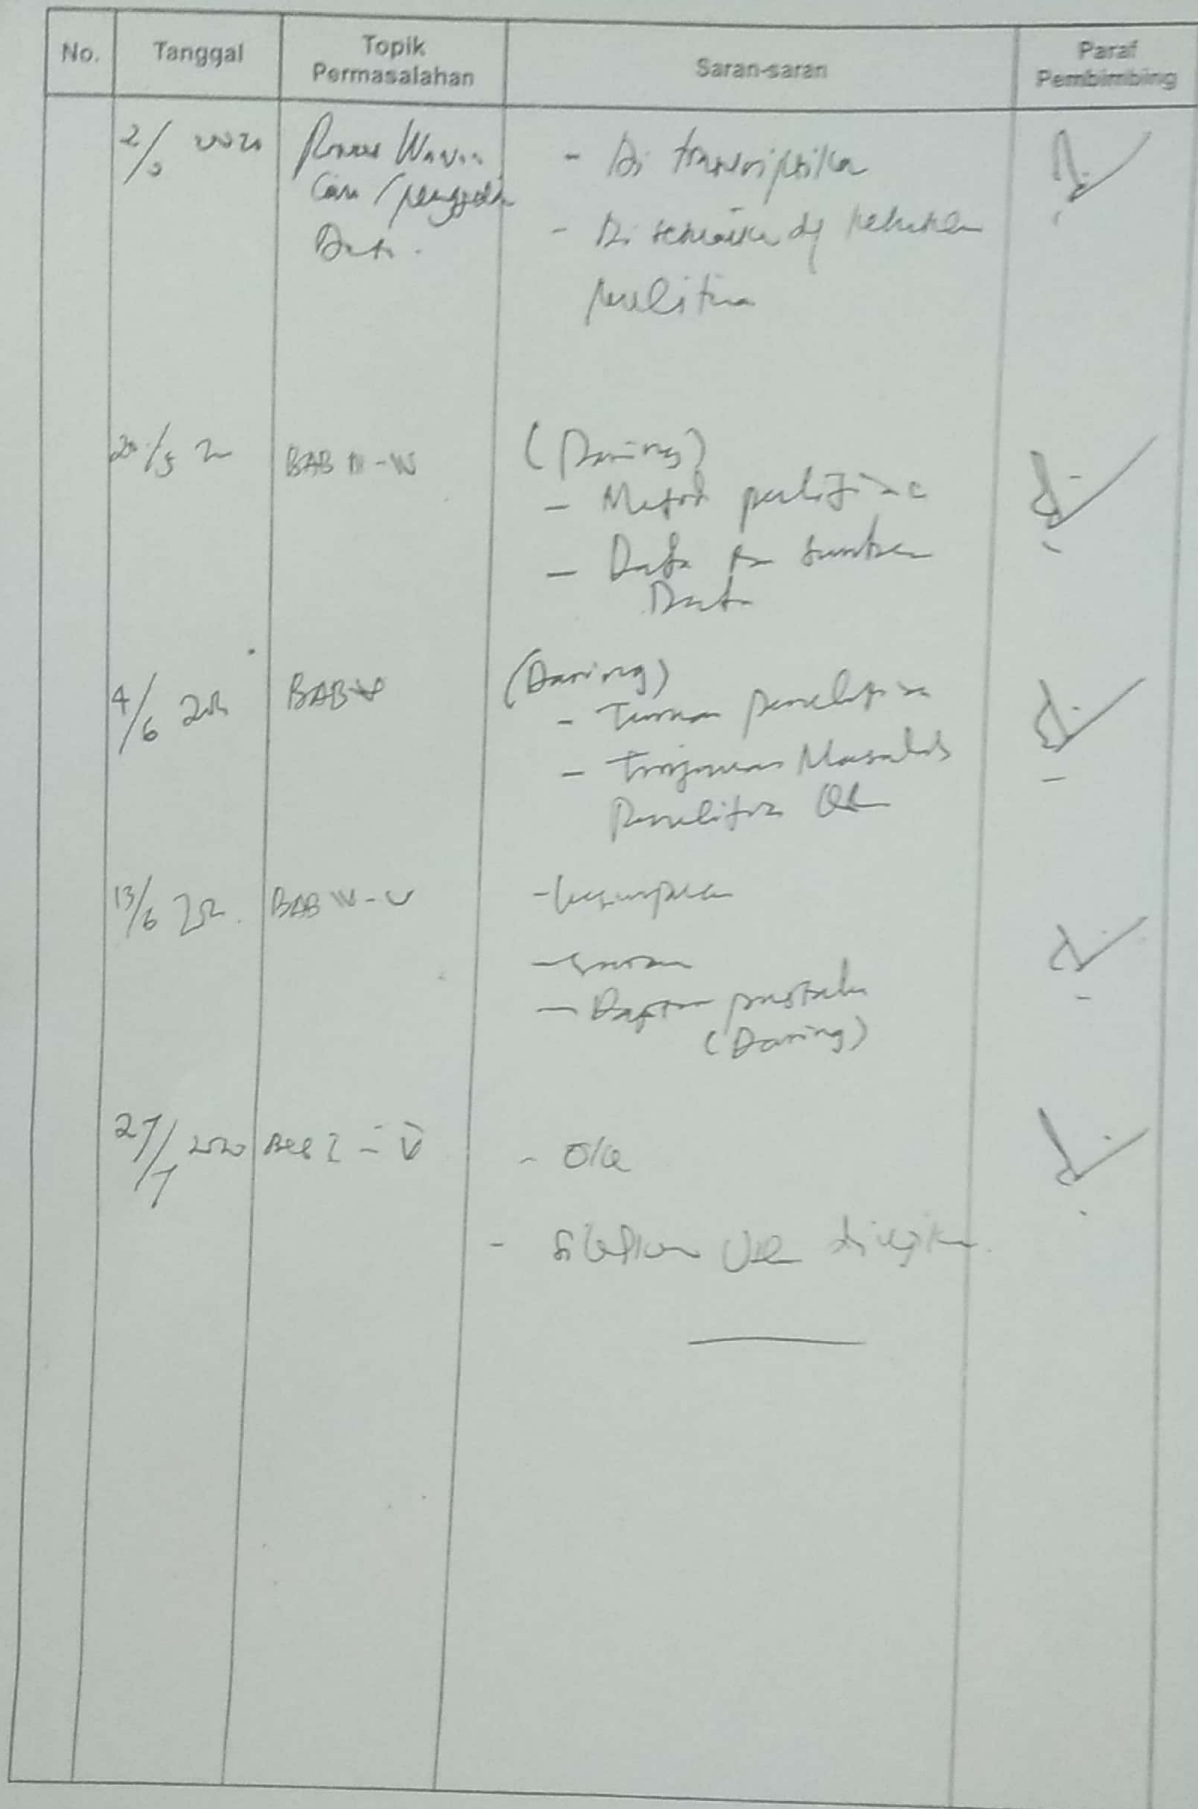 No.
Tanggal
Topik
Permasalahan
Saran-saran
Paraf
Pembimbing
2/ 2020
Proses Wawan
Cara / penggalian
Data.
- Di transkripsikan
- Di sesuaikan dg
penelitian
20/5
BAB III-IV
(Daring)
- Metode penelitian
- Data dan sumber
Data
4/6 20
BAB
(Daring)
- penelitian
- Tinjauan Masalah
Penelitian
13/6 20.
BAB IV-V
- kesimpulan
- Saran
- Daftar pustaka
(Daring)
27/7 2020
BAB I - V
- Oke
- Silahkan diujikan.